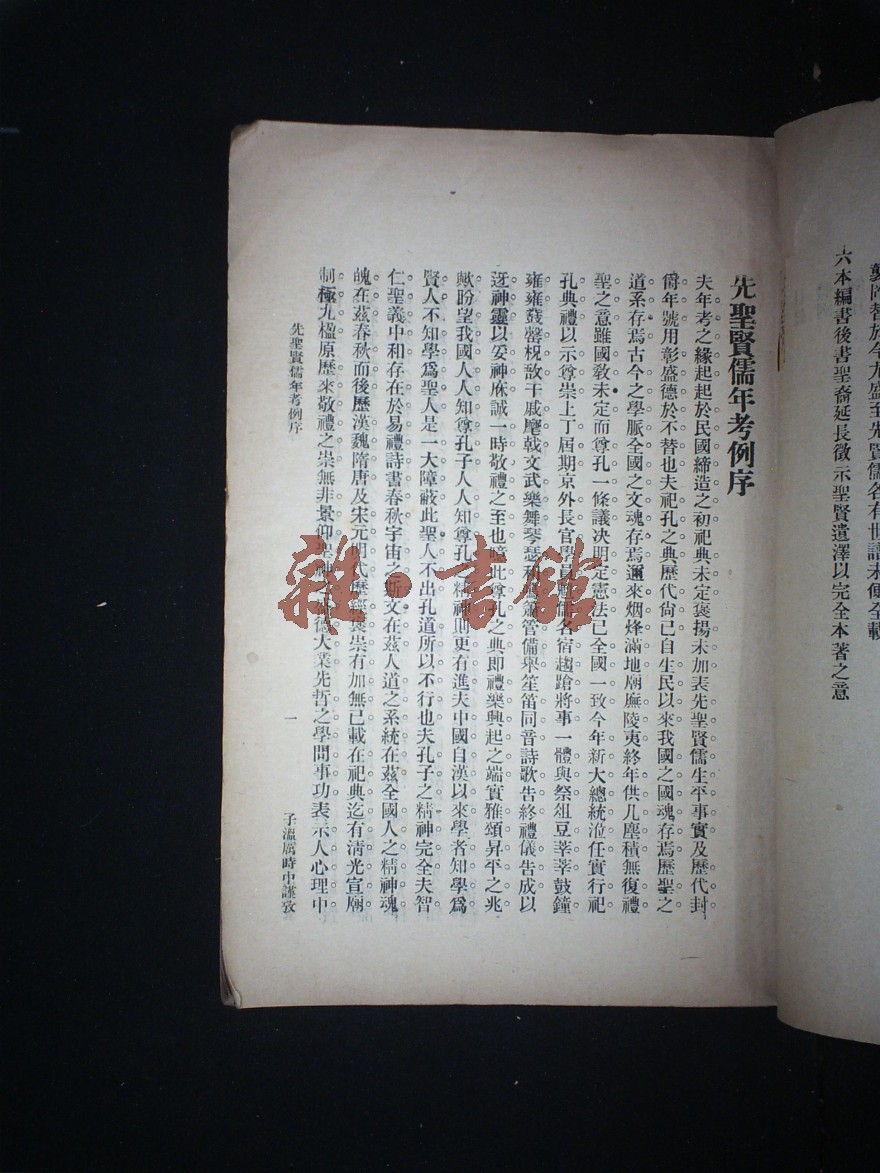 六本編書後書聖裔延長徵示聖賢遺澤以完全本著之意
先聖賢儒年考例序
夫年考之緣起起於民國締造之初祀典未定褒揚未加表先聖賢儒生平事實及歷代封
爵年號用彰盛德於不替也夫祀孔之典歷代尙已自生民以來我國之國魂存焉歷聖之
道系存焉古今之學脈全國之文魂存焉邇來烟烽滿地廟廡陵夷終年供几塵積無復禮
聖之意雖國敎未定而尊孔一條議决明定憲法已全國一致今年新大總統涖任實行祀
孔典禮以示尊崇上丁屆期京外長官學員各宿趨蹌將事一體與祭俎豆莘莘鼓鐘
雍雍發罄柷敔干戚麾戟文武樂舞琴瑟簫管備舉笙笛同音詩歌告終禮儀告成以
迓神靈以安神庥誠一時敬禮之至也噫此尊孔之典卽禮樂興起之端實雅頌昇平之兆
歟盼望我國人人知尊孔子人人知尊孔之精神則更有進夫中國自漢以來學者知學爲
賢人不知學爲聖人是一大障蔽此聖人不出孔道所以不行也夫孔子之精神完全夫智
仁聖義中和存在於易禮詩書春秋宇宙之斯文在茲人道之系統在茲全國人之精神魂
魄在茲春秋而後歷漢魏隋唐及宋元明代歷經褒崇有加無已載在祀典迄有淸光宣廟
制極九楹原歷來敬禮之崇無非景仰聖神德大業先哲之學問事功表示人心理中
先聖賢儒年考例序
一
子溫厲時中謹攷
雜·書館